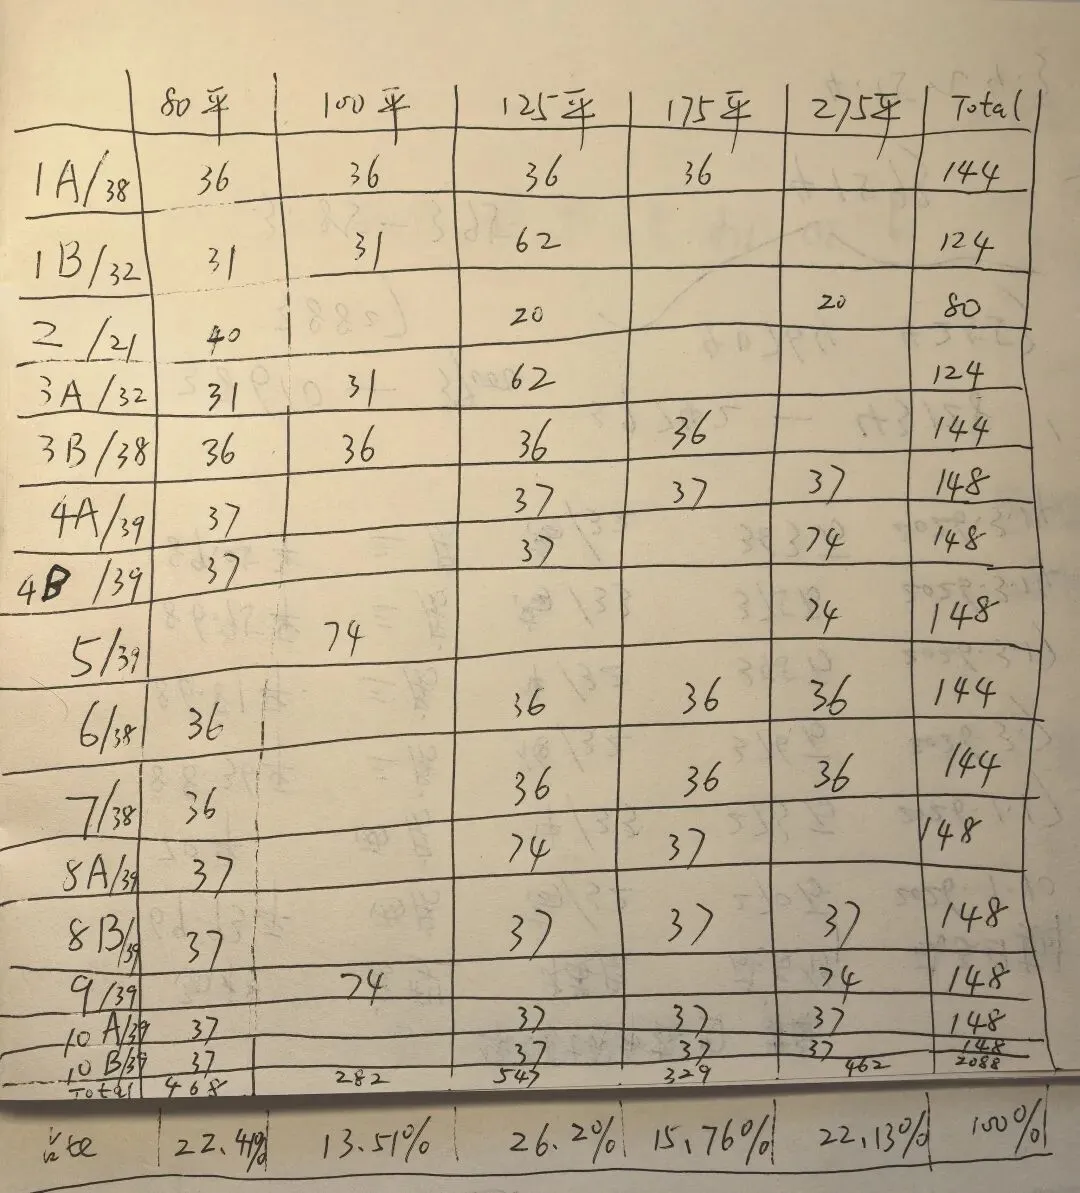 80平 100平 125平 175平 275平 Total
1A/38 36 36 36 36 144
1B/32 31 31 62 124
2/21 40 20 20 80
3A/32 31 31 62 124
3B/38 36 36 36 36 144
4A/39 37 37 37 37 148
4B/39 37 37 74 148
5/39 74 74 148
6/38 36 36 36 36 144
7/38 36 36 36 36 144
8A/39 37 74 37 148
8B/39 37 37 37 37 148
9/39 74 74 148
10A/39 37 37 37 37 148
10B/39 37 37 37 37 148
Total 468 282 547 329 462 2088
占比 22.41% 13.51% 26.2% 15.76% 22.13% 100%